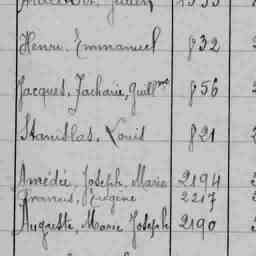 Henri, Emmanuel 832
Jacques, Zacharie, Guillme 856
Stanislas, Louis 821
Amédée, Joseph, Marie 2194
Francois, Eugène 2217
Auguste, Marie Joseph 2190